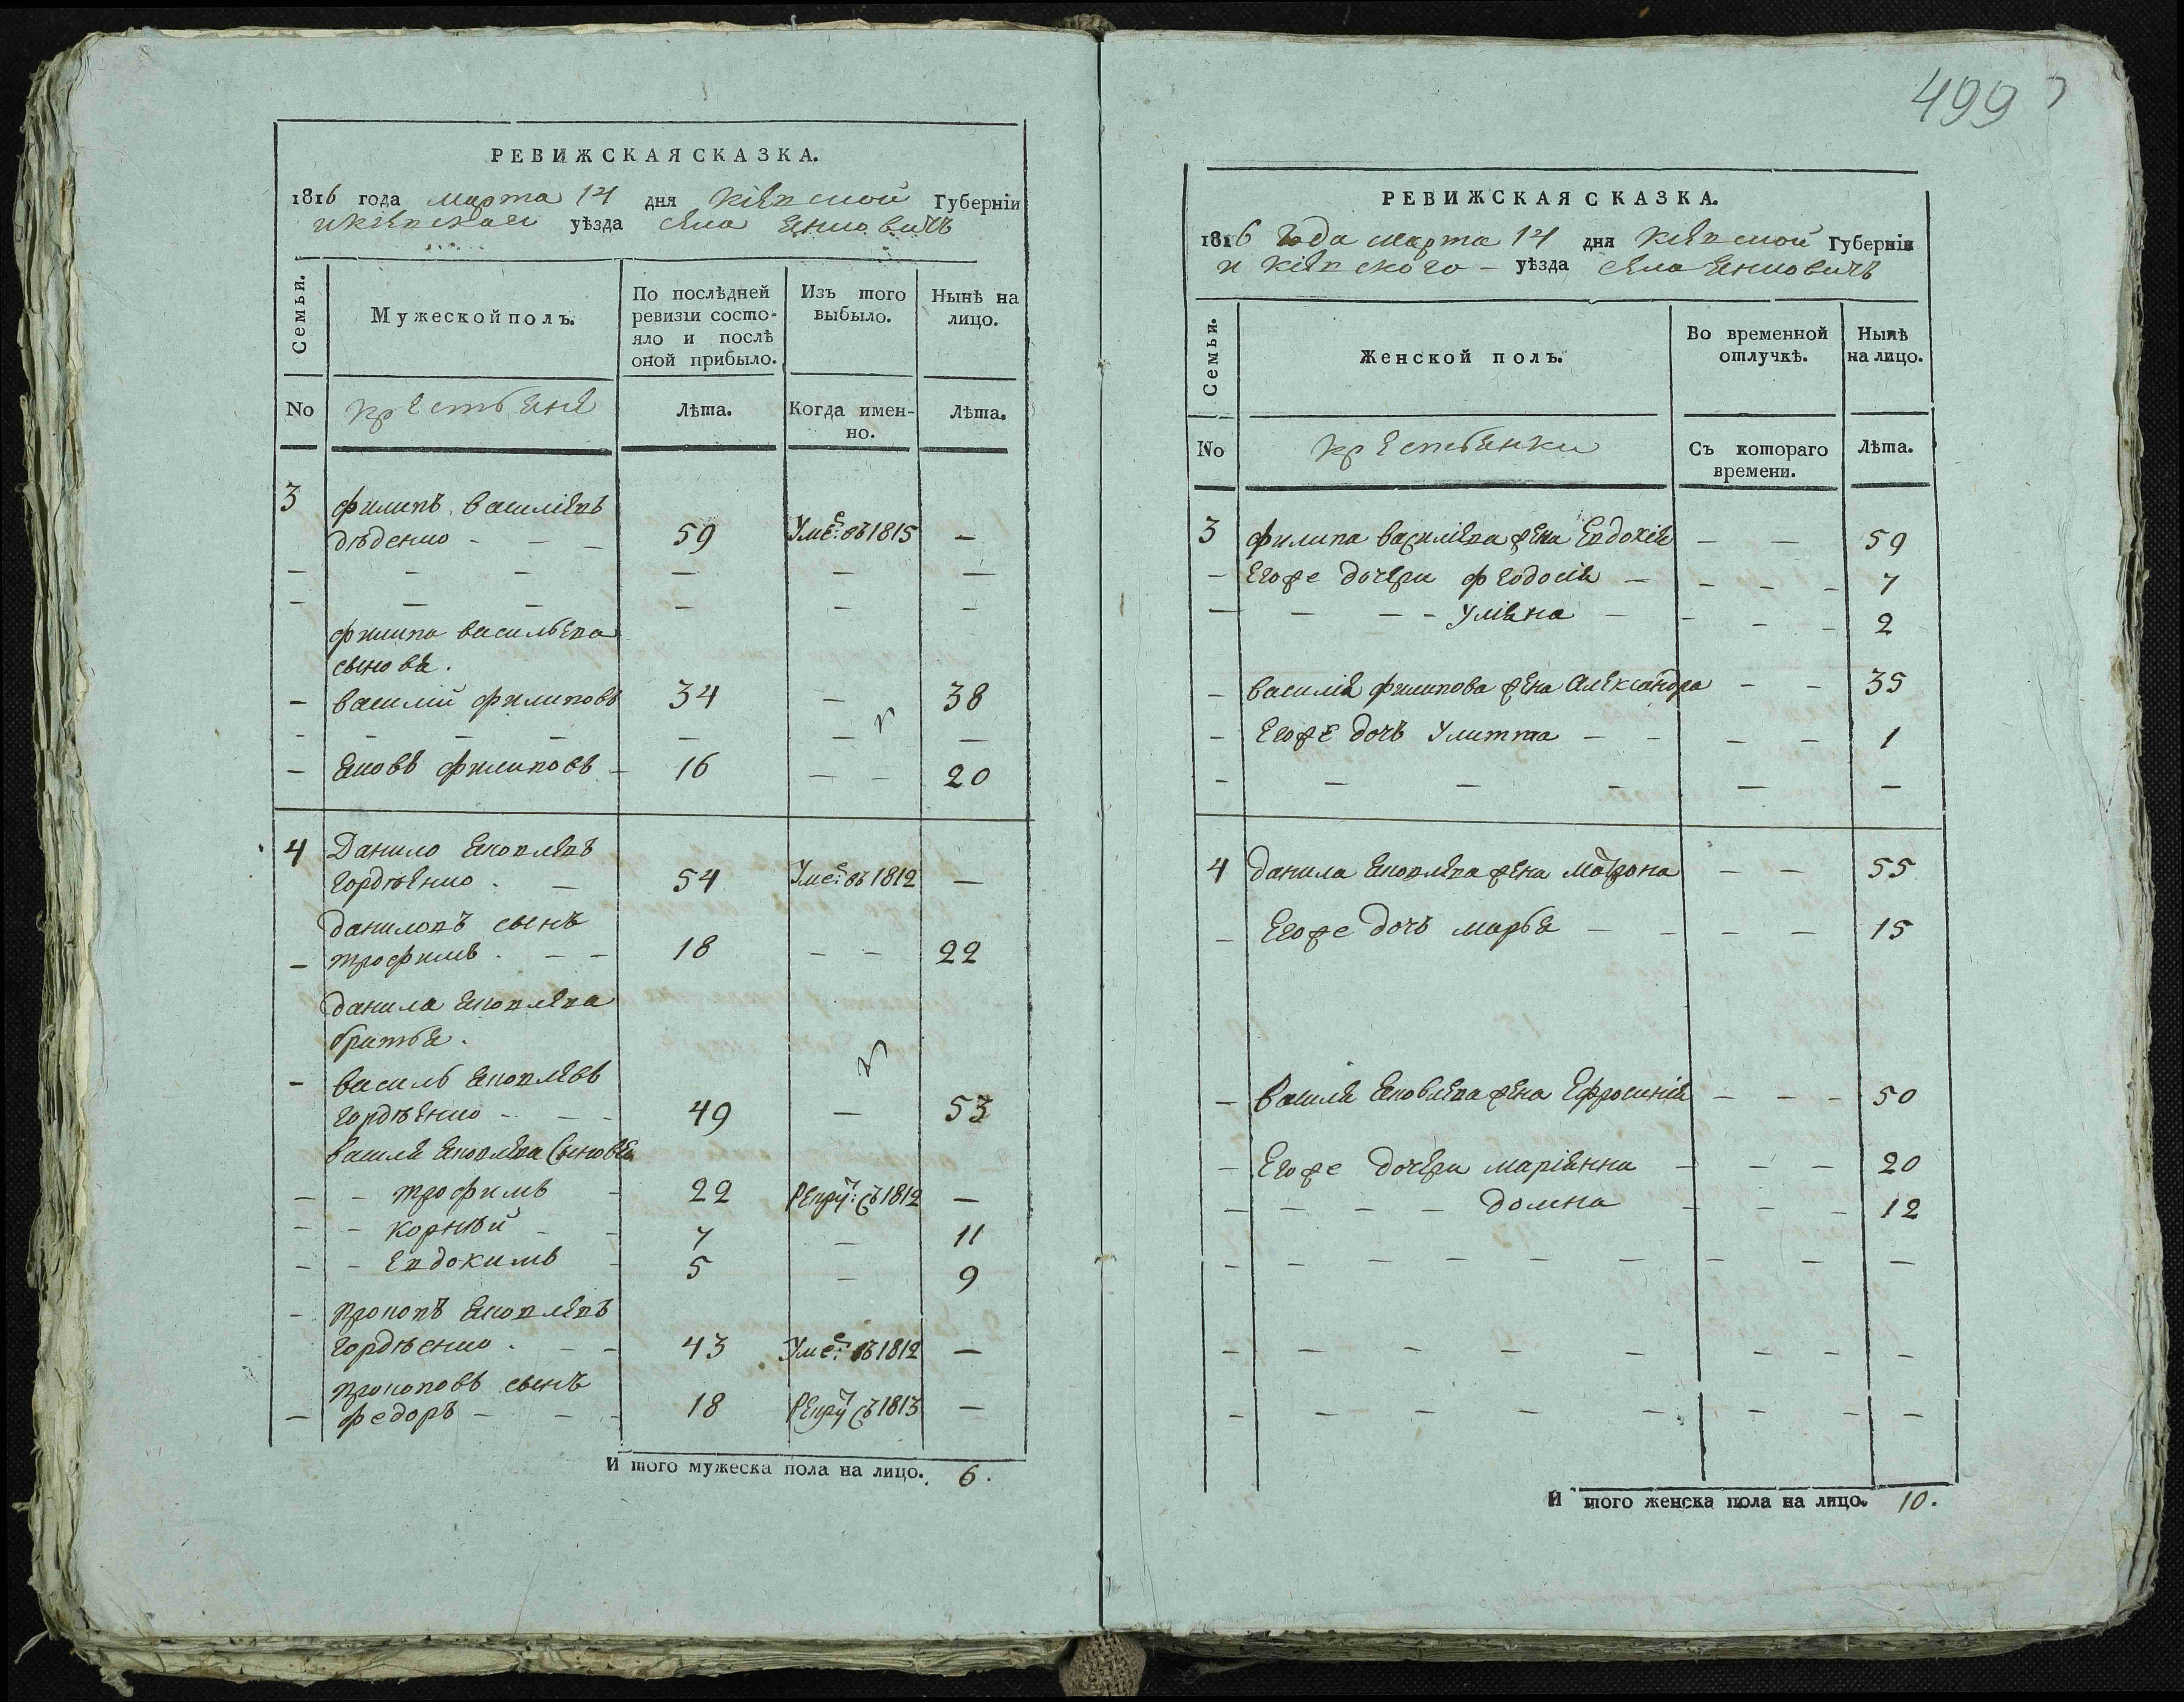 499
РЕВИЖСКАЯ СКАЗКА.
1816 года марта 14 дня Кіевской Губерніи
и Кіевскаго уѣзда села Янковичъ
Семьи.
Мужеской полъ.
По послѣдней ревизіи состояло и послѣ оной прибыло.
Изъ того выбыло.
Нынѣ на лицо.
No
крестьяне
Лѣта.
Когда именно.
Лѣта.
3 филипъ василіевъ
дѣденко - - - 59 Уме: въ 1815 -
филипа васильева
сыновя.
- василій филиповъ 34 - 38
- яковъ филиповъ - 16 - - 20
4 Данило яковлевъ
гордѣенко . - 54 Уме: въ 1812 -
даниловъ сынъ
- трофимъ . - - 18 - - 22
данила яковлева
братья.
- василь яковлевъ
гордѣенко - - - 49 - 53
василя яковлева сыновья
- - трофимъ - 22 Рекру: съ 1812 -
- - корнѣй - - 7 - 11
- - Евдокимъ - 5 - 9
- прокопъ яковлевъ
гордѣенко . - - 43 Уме: въ 1812 -
прокоповъ сынъ
- федоръ - - - 18 Рекру съ 1813 -
И того мужеска пола на лицо. 6.
РЕВИЖСКАЯ СКАЗКА.
1816 года марта 14 дня Кіевской Губерніи
и Кіевского - уѣзда села янковичъ
Семьи.
Женской полъ.
Во временной отлучкѣ.
Нынѣ на лицо.
No
крестьянки
Съ котораго времени.
Лѣта.
3 филипа василіева жена Евдокія - - 59
- Егоже дочери феодосія - - - - 7
- - - - Уліяна - - - - 2
- василія филипова жена Александра - - 35
- Егоже дочъ Улитта - - - - 1
4 данила яковлева жена матрона - - 55
- Егоже дочъ марья - - - - 15
- василя яковлева жена Ефросинія - - - 50
- Егоже дочери маріянна - - - 20
- - - - - домна - - - 12
И того женска пола на лицо. 10.